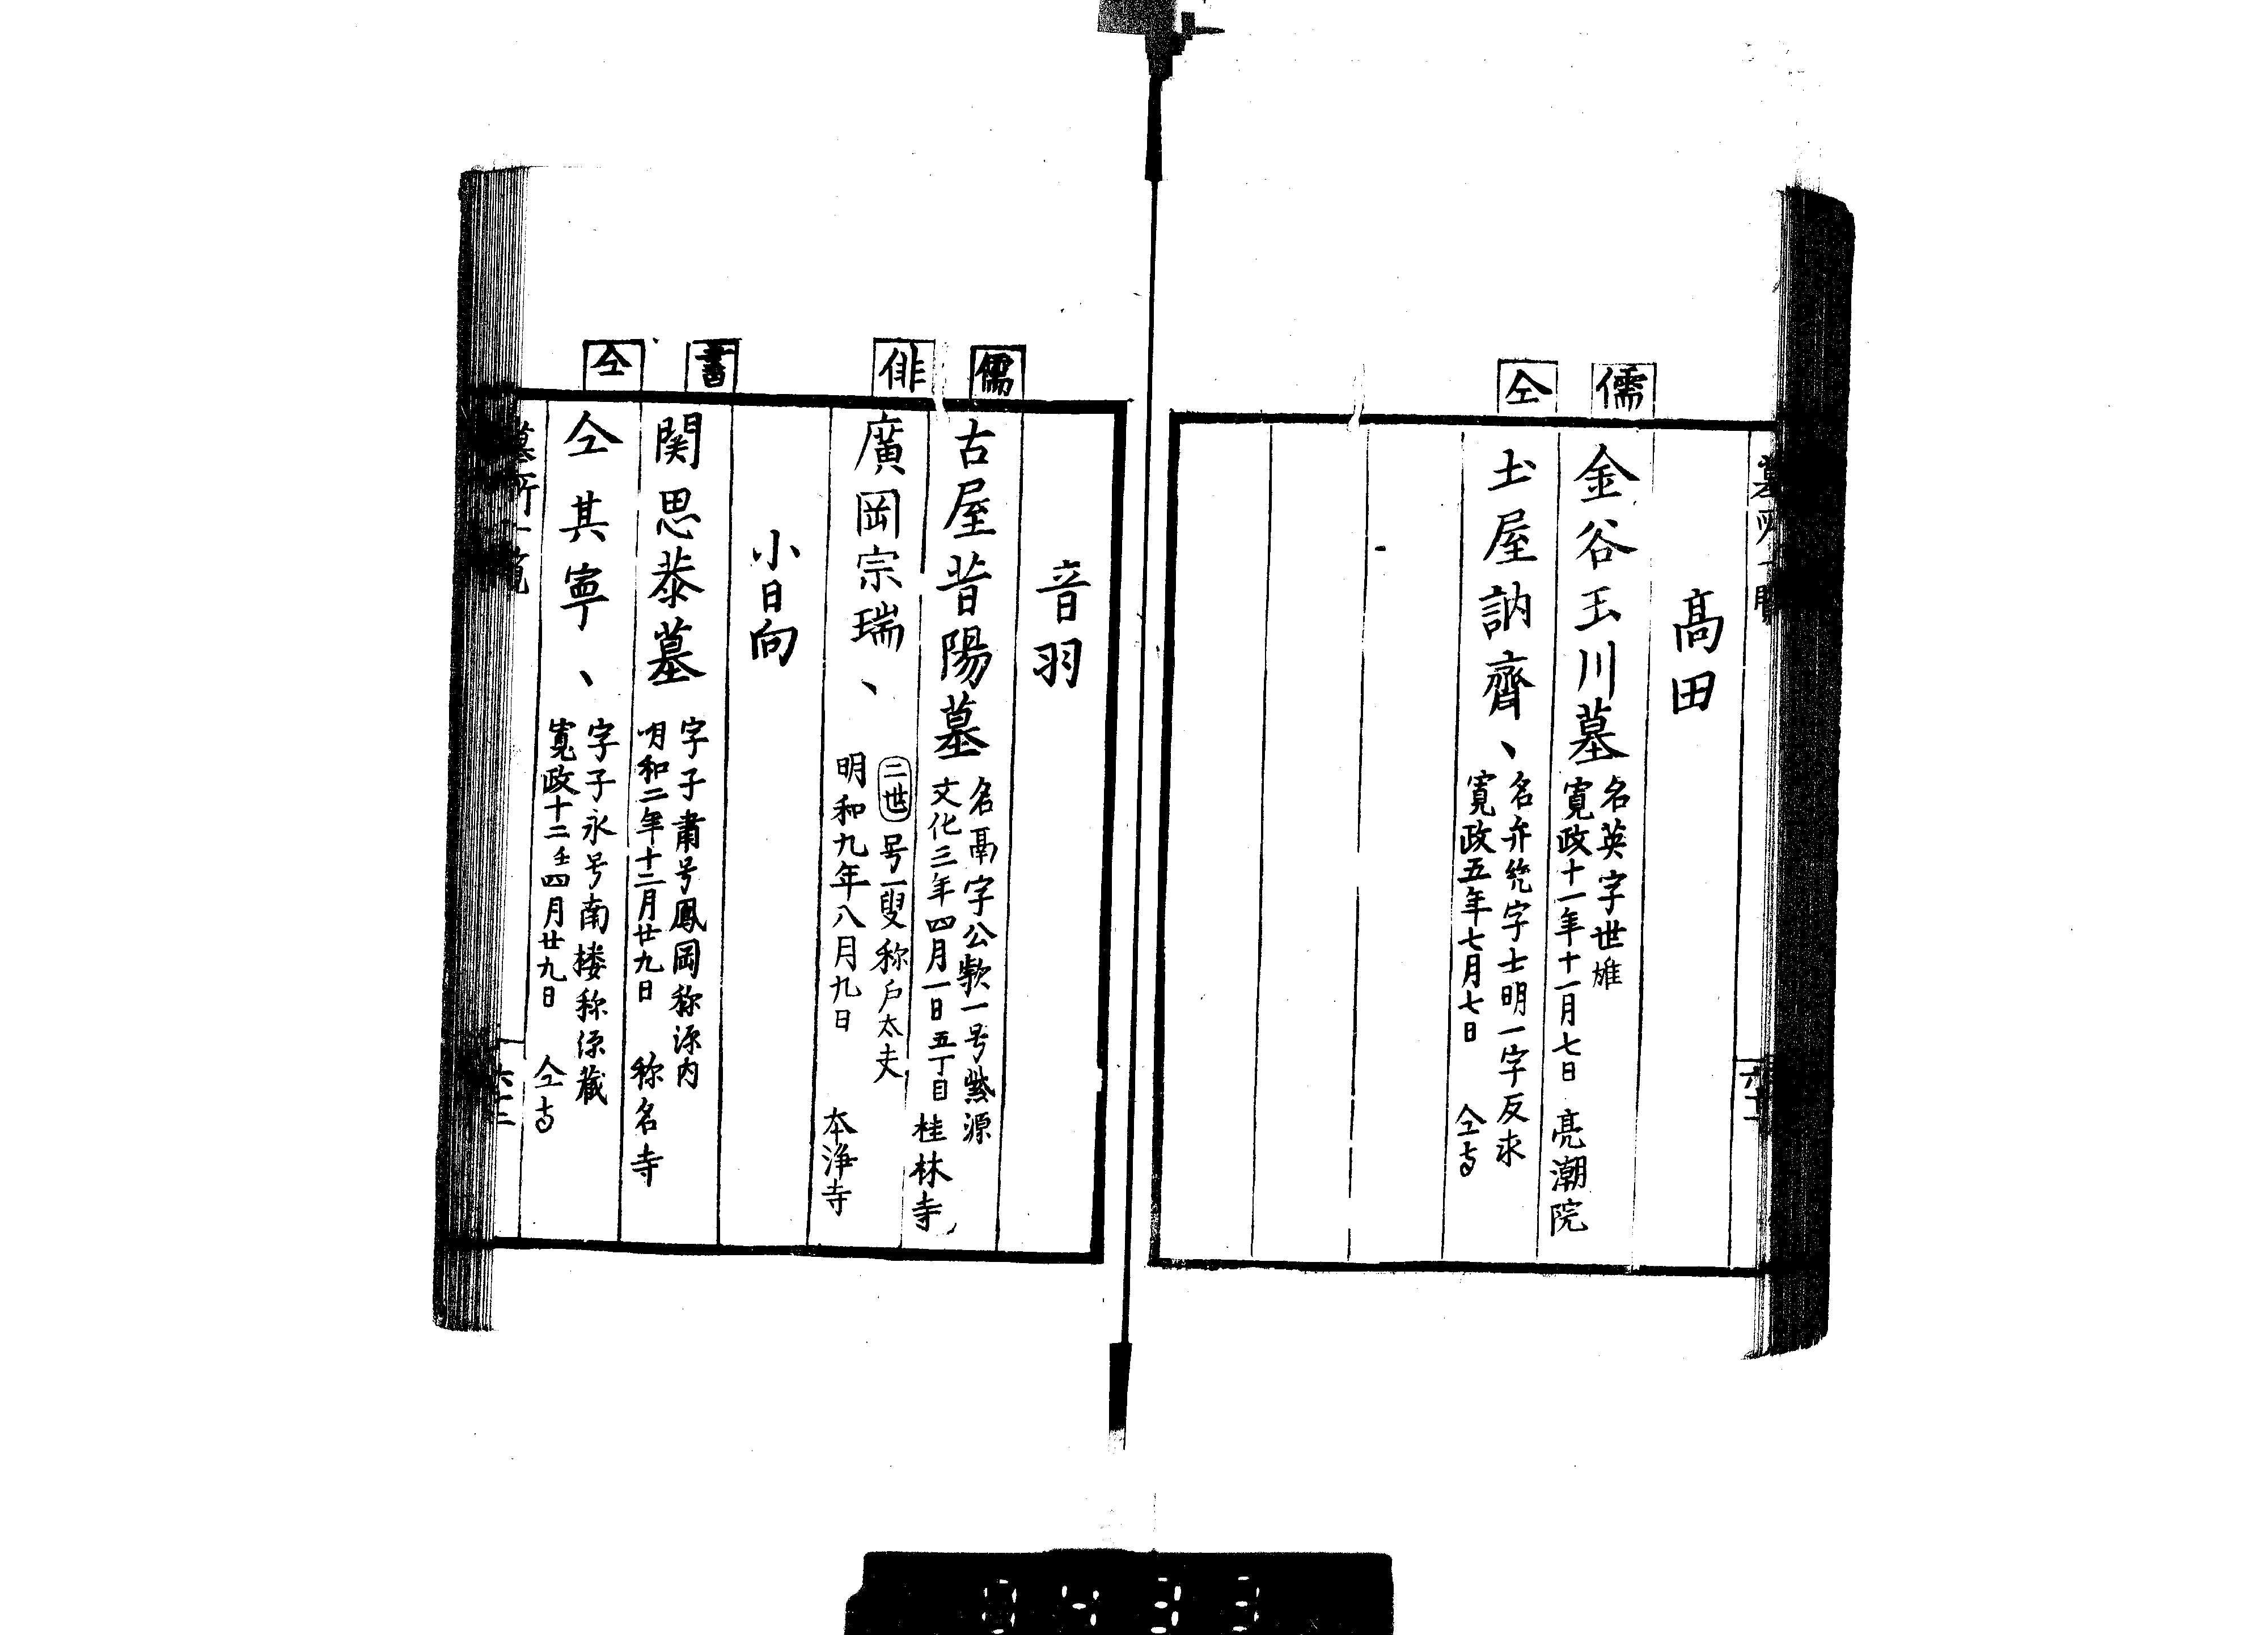 墓所一覧
六十一
高田
儒
金谷玉川墓
名英字世雄
寛政十一年十一月七日 亮潮院
仝
土屋訥齊、
名弁 字士明一字反求
寛政五年七月七日 仝寺
音羽
儒
古屋昔陽墓
名鬲字公款一号紫源
文化三年四月一日五丁目桂林寺
俳
廣岡宗瑞、
二世 号一叟称户太夫
明和九年八月九日 本浄寺
小日向
書
関思恭墓
字子肅号鳳岡称源内
明和二年十二月廿九日 称名寺
仝
仝其寧、
字子永号南楼称源蔵
寛政十二壬四月廿九日 仝寺
墓所一覧
六十二
9433